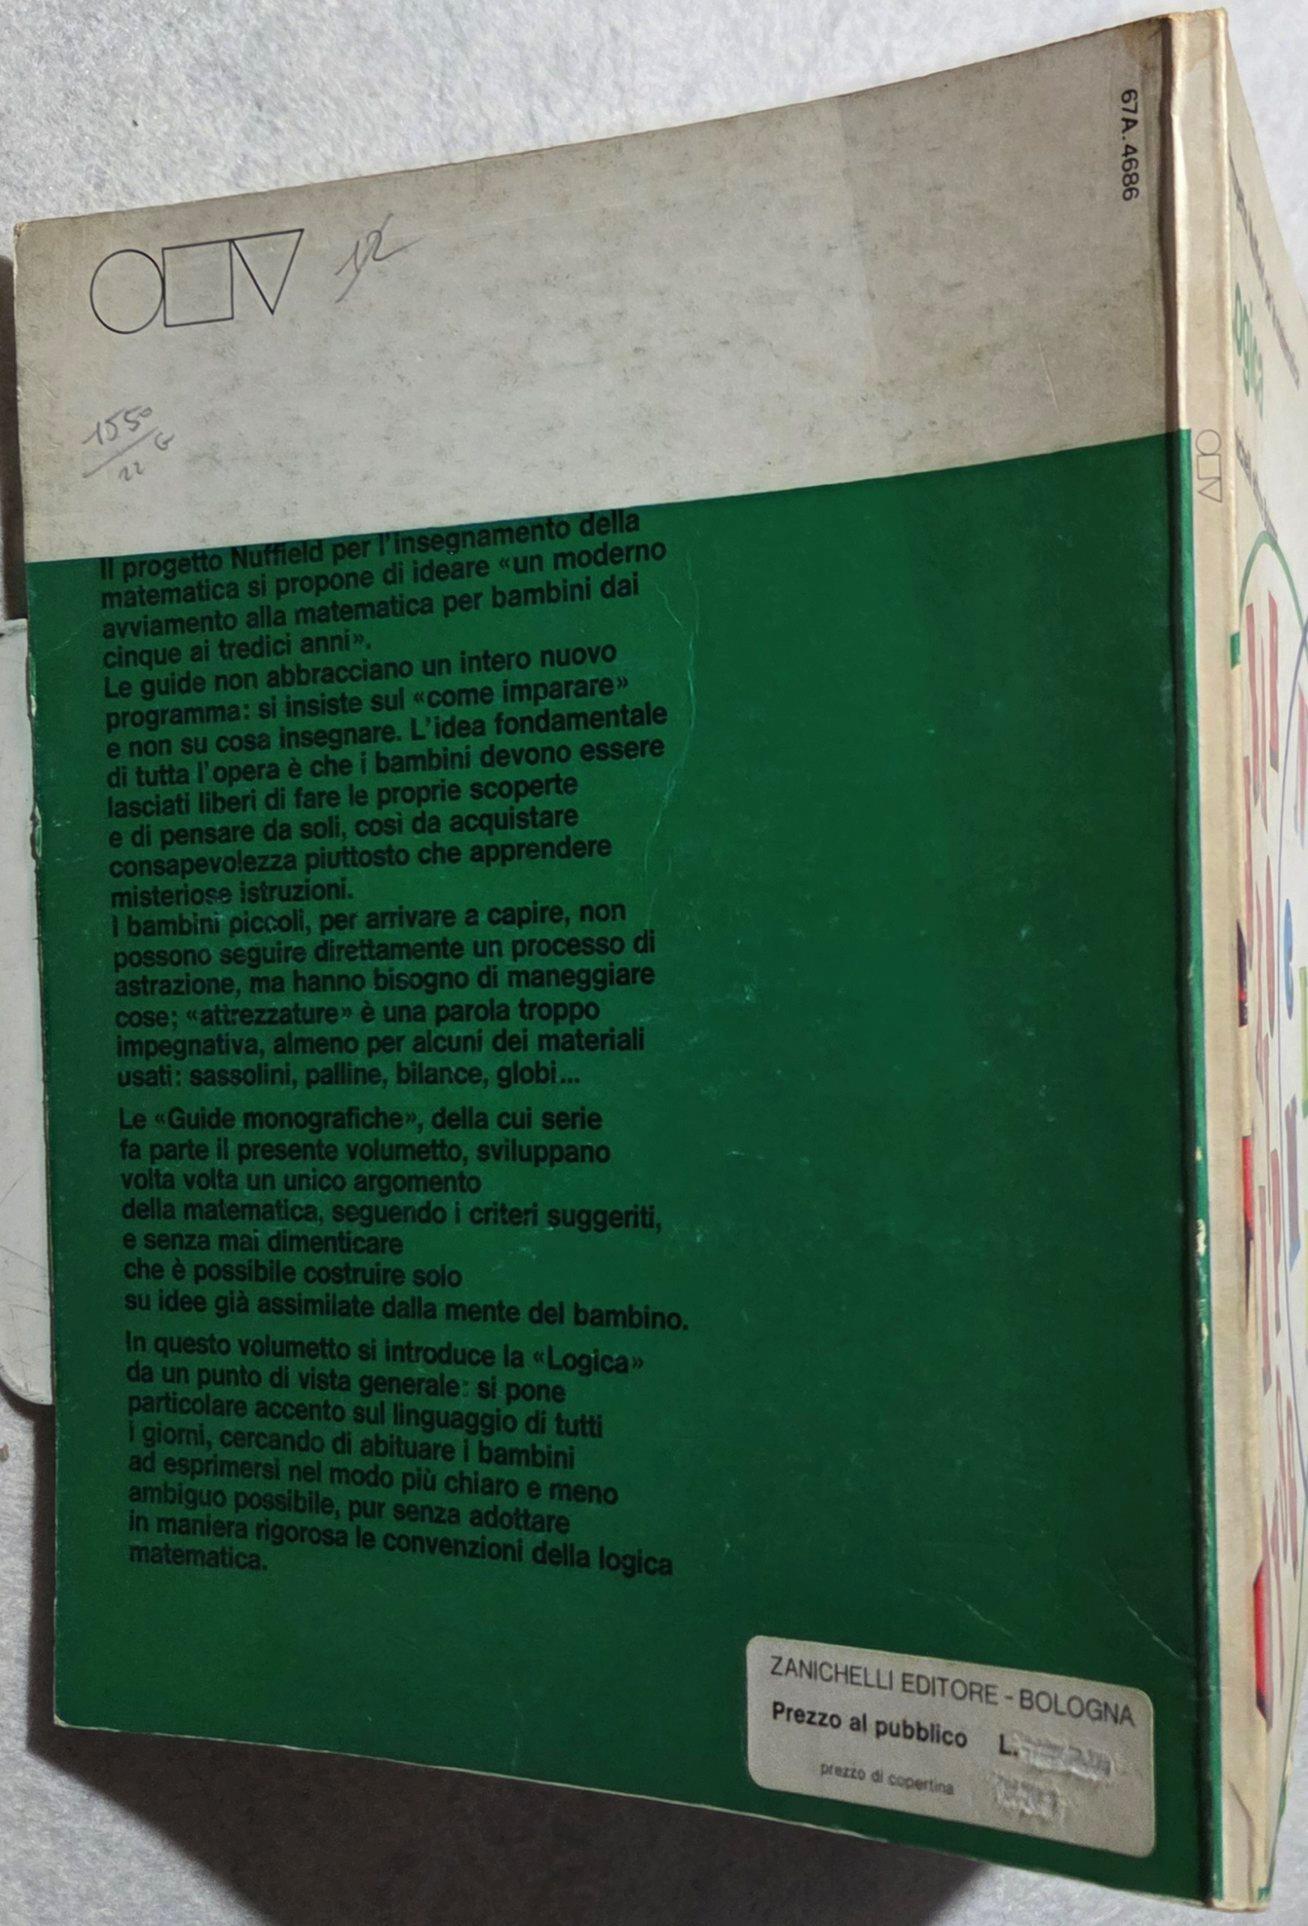 67A.4686
12
1550
22
Il progetto Nuffield per l'insegnamento della
matematica si propone di ideare «un moderno
avviamento alla matematica per bambini dai
cinque ai tredici anni».
Le guide non abbracciano un intero nuovo
programma: si insiste sul «come imparare»
e non su cosa insegnare. L'idea fondamentale
di tutta l'opera è che i bambini devono essere
lasciati liberi di fare le proprie scoperte
e di pensare da soli, così da acquistare
consapevolezza piuttosto che apprendere
misteriose istruzioni.
I bambini piccoli, per arrivare a capire, non
possono seguire direttamente un processo di
astrazione, ma hanno bisogno di maneggiare
cose; «attrezzature» è una parola troppo
impegnativa, almeno per alcuni dei materiali
usati: sassolini, palline, bilance, globi...
Le «Guide monografiche», della cui serie
fa parte il presente volumetto, sviluppano
volta volta un unico argomento
della matematica, seguendo i criteri suggeriti,
e senza mai dimenticare
che è possibile costruire solo
su idee già assimilate dalla mente del bambino.
In questo volumetto si introduce la «Logica»
da un punto di vista generale: si pone
particolare accento sul linguaggio di tutti
i giorni, cercando di abituare i bambini
ad esprimersi nel modo più chiaro e meno
ambiguo possibile, pur senza adottare
in maniera rigorosa le convenzioni della logica
matematica.
ZANICHELLI EDITORE - BOLOGNA
Prezzo al pubblico L.
prezzo di copertina
ogica